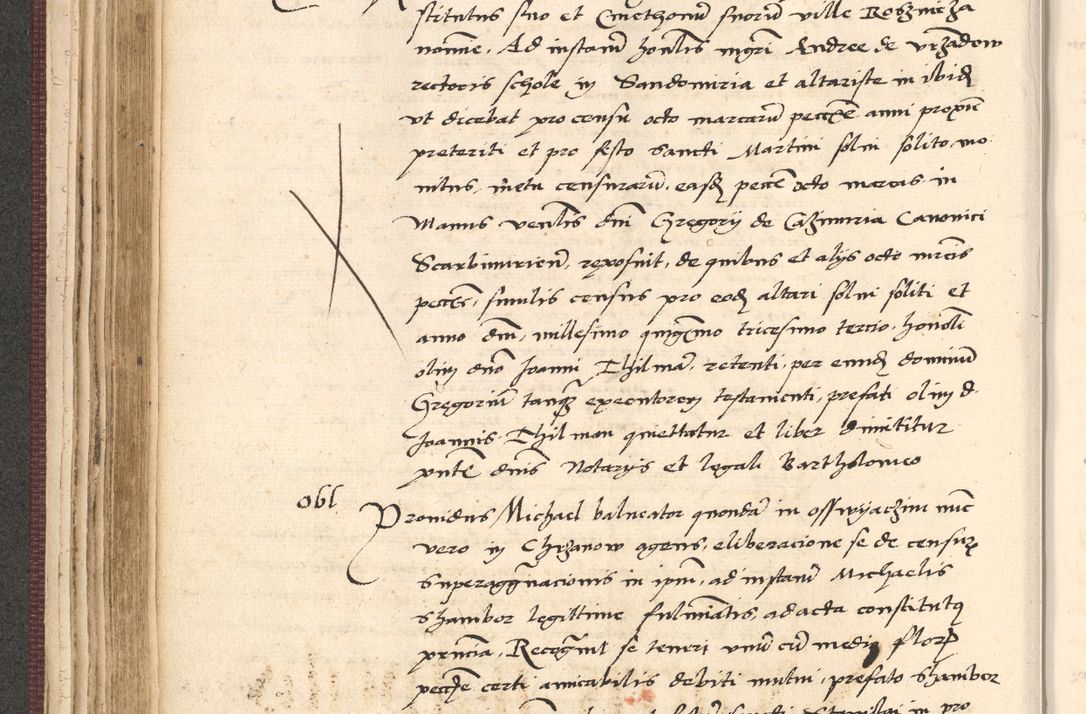 stitutus suo et Cmethonum suorum ville Rosznicza
nomine, Ad instanciam honorabilis magistri Andree de Vrzadow
rectoris schole in Sandomiria et altariste in ibidem
vt dicebat pro censu octo marcarum peccunie anni proxime
preteriti et pro festo Sancti Martini solui solito mo
nitus, metu censurarum, easdem peccunie octo marcas in
Manus venerabilis domini Gregorij de Cazimiria Canonici
Scarbimiriensis, reposuit, de quibus et alijs octo marcis
peccunie, similis census pro eodem altari solui soliti et
anno domini millesimo quingentesimo tricesimo tercio, honorabili
olim domino Joanni Thilman, retenti, per eundem dominum
Gregorium tanquam executorem testamenti, prefati olim d.
Joannis Thilman quiettatur et liber dimittitur
presente dominis Notarijs et legali Bartholomeo
Obl.
Prouidus Michael balneator quondam in osswyaczim nunc
vero in Chrzanow agens, e liberacione se de censuris
superaggrauacionis in ipsum, ad instanciam Michaelis
Shambor legittime fulminatis, ad acta constitutus
presencia, Recognouit se teneri vnum cum medio flor.
peccunie certi amicabilis debiti mutui, prefato Shambor